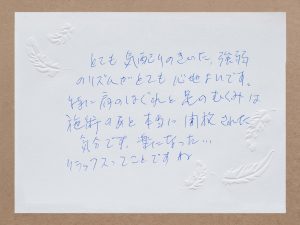 とても気配りのきいた、強弱
のリズムがとても心地よいです。
特に肩のほぐれと足のむくみは
施術のあと本当に開放された
気分です。楽になった…
リラックスってことですね